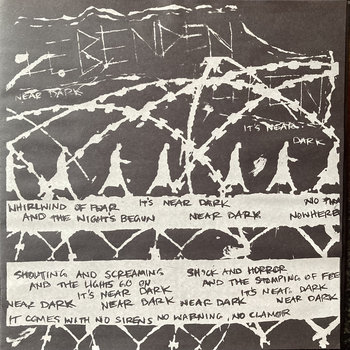 NEAR DARK
IT'S NEAR
DARK
WHIRLWIND OF FEAR IT'S NEAR DARK NO
AND THE NIGHTS BEGUN NEAR DARK NOWHERE
SHOUTING AND SCREAMING SHOCK AND HORROR
AND THE LIGHTS GO ON AND THE STOMPING OF FEE
IT'S NEAR DARK IT'S NEAR DARK
NEAR DARK NEAR DARK NEAR DARK NEAR DARK
IT COMES WITH NO SIRENS NO WARNING, NO CLAMOR